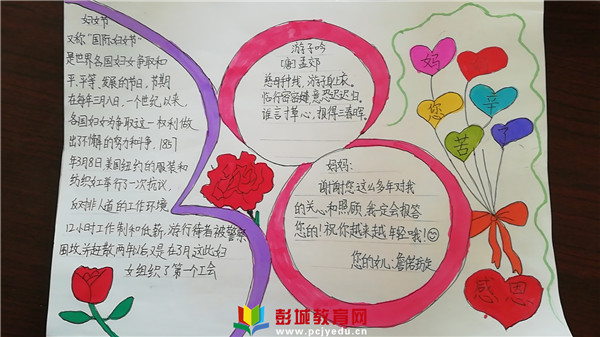 妇女节
又称“国际妇女节”
是世界各国妇女争取和
平、平等、发展的节日,节期
在每年三月八日,一个世纪以来,
各国妇女为争取这一权利做
出不懈的努力和斗争,1857
年3月8日,美国纽约的服装和
纺织女工举行了一次抗议,
反对非人道的工作环境,
12小时工作制和低薪,游行待者被警察
围攻并赶散,两年以后又是在3月,这些妇
女组织了第一个工会
游子吟
(唐)孟郊
慈母手中线,游子身上衣。
临行密密缝,意恐迟迟归。
谁言寸草心,报得三春晖。
妈妈:
谢谢您这么多年对我
的关心和照顾,我定会报答
您的!祝你越来越年轻哦!
您的女儿:詹诺
妈
您
辛
苦
了
感恩
彭城教育网
www.pcjyedu.cn